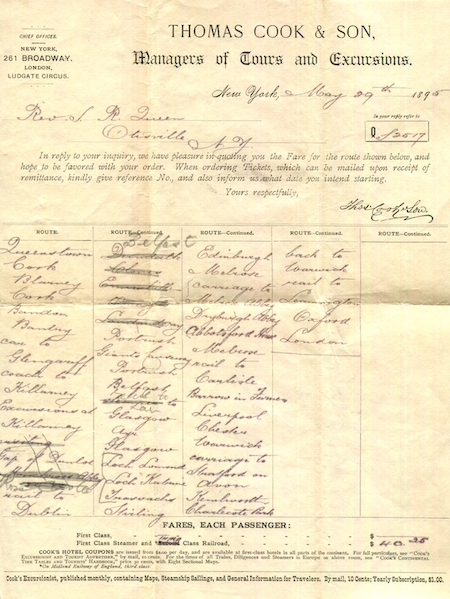 CHIEF OFFICES.
NEW YORK,
261 BROADWAY.
LONDON,
LUDGATE CIRCUS.
THOMAS COOK & SON,
Managers of Tours and Excursions.
New York, May 29th 1895
Rev. S. R. Queen
Otisville
N.Y.
In your reply refer to
Q/3517
In reply to your inquiry, we have pleasure in quoting you the Fare for the route shown below, and
hope to be favored with your order. When ordering Tickets, which can be mailed upon receipt of
remittance, kindly give reference No., and also inform us what date you intend starting.
Yours respectfully,
Thos Cook & Son.
ROUTE.
Queenstown
Cook
Blarney
Cook
Bandon
Bantry
car to
Glengariff
coach to
Killarney
Excursions at
Killarney
Gap of Dunloe
rail to
Dublin
ROUTE—Continued.
Belfast
Portrush
Giants causeway
Portrush
Belfast
to
Glasgow
Ayr
Glasgow
Loch Lomond
Loch Katrine
Trossachs
Stirling
ROUTE—Continued.
Edinburgh
Melrose
carriage to
Melrose Abbey
Dryburgh Abbey
Abbotsford House
Melrose
rail to
Carlisle
Barrow in Furness
Liverpool
Chester
Warwick
carriage to
Stratford on
Avon
Kenilworth
Charlecote Park
ROUTE—Continued.
back to
Warwick
rail to
Leamington
Oxford
London
FARES, EACH PASSENGER:
First Class, - $
First Class Steamer and Third Class Railroad, - $ 40.25
COOK'S HOTEL COUPONS are issued from $2.00 per day, and are available at first-class hotels in all parts of the continent. For full particulars, see "COOK'S
EXCURSIONIST AND TOURIST ADVERTISER," by mail, 10 cents. For the times of all Trains, Diligences and Steamers in Europe as above route, see "COOK'S CONTINENTAL
TIME TABLES AND TOURISTS' HANDBOOK," price 30 cents, with Eight Sectional Maps.
On Midland Railway of England, third class
Cook's Excursionist, published monthly, containing Maps, Steamship Sailings, and General Information for Travelers. By mail, 10 Cents; Yearly Subscription, $1.00.